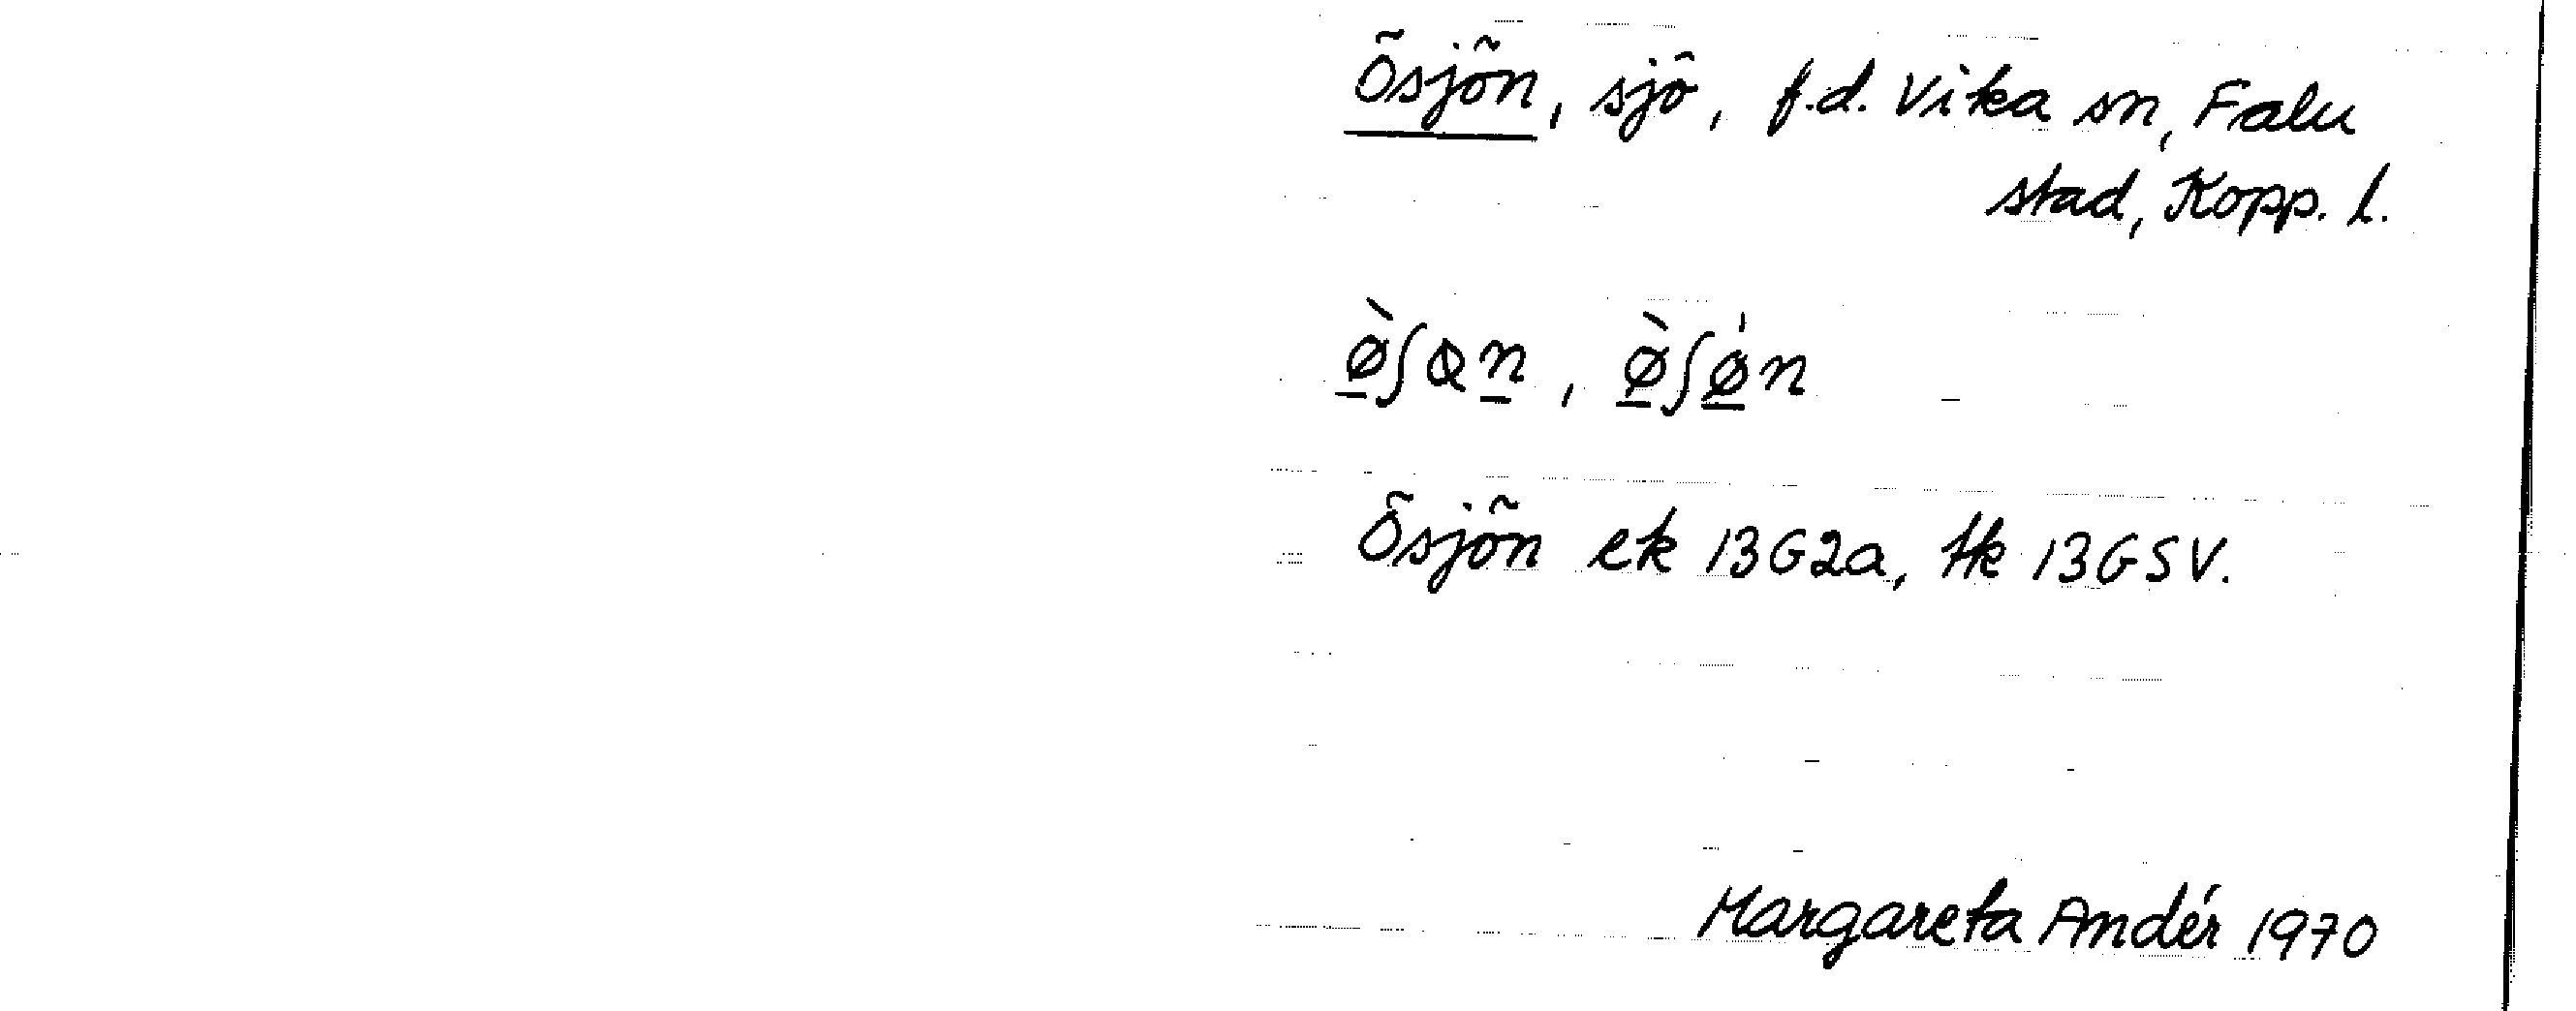 Ösjön, sjö, f.d. Vika sn, Falu
stad, Kopp. l.
ø̠̀ʃꬹn̠, ø̠̀ʃǿ̠n
Ösjön ek 13G2a, tk 13GSV.
Margareta Andér 1970